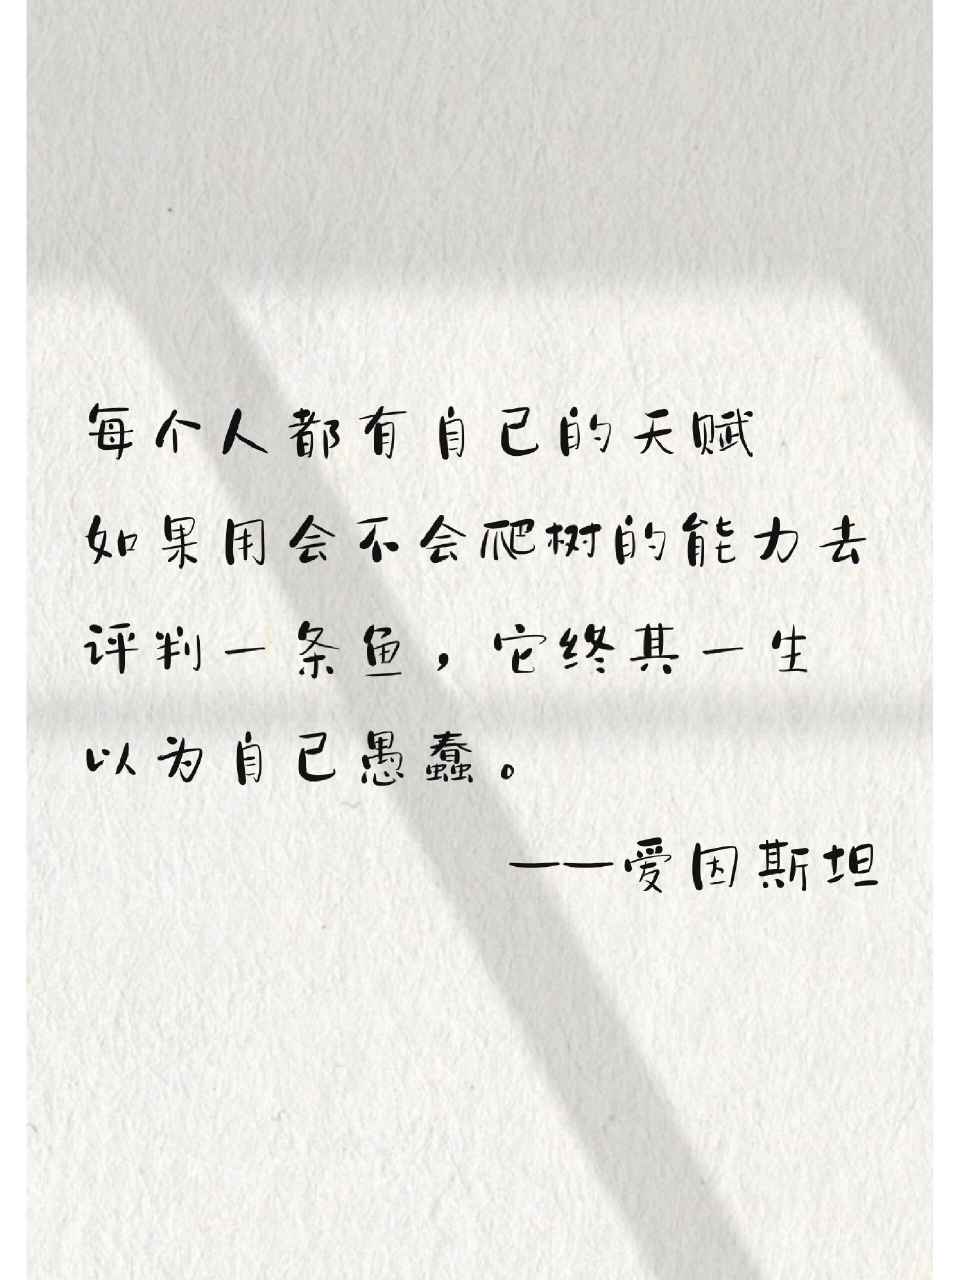 每个人都有自己的天赋
如果用会不会爬树的能力去
评判一条鱼，它终其一生
以为自己愚蠢。
——爱因斯坦